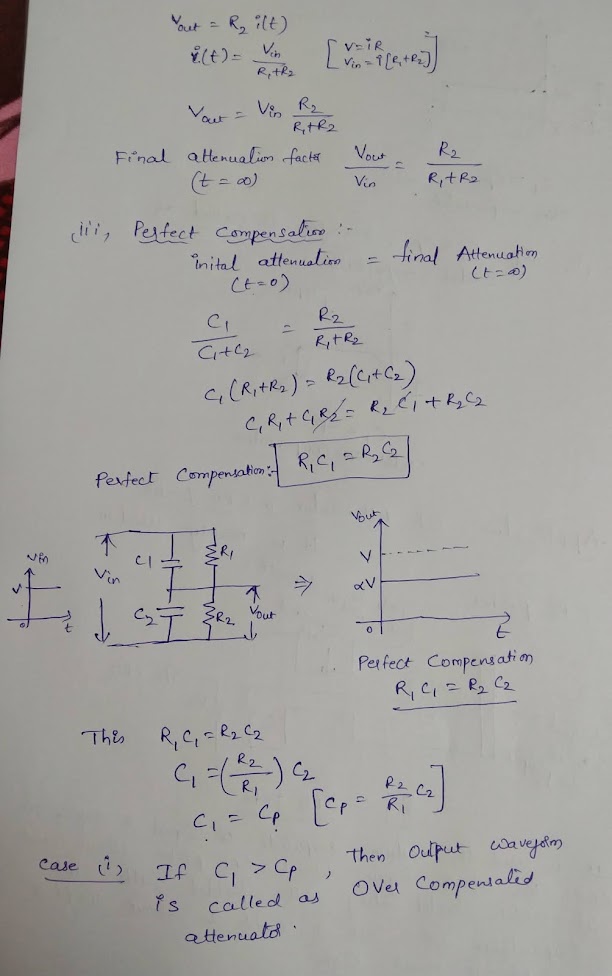 Vout = R2 i(t)
i(t) = Vin / R1+R2 [ V=iR
Vin = i[R1+R2] ]
Vout = Vin R2 / R1+R2
Final attenuation factor Vout / Vin = R2 / R1+R2
(t = ∞)
(iii, Perfect Compensation :-
inital attenuation = final Attenuation
(t=0) (t=∞)
C1 / C1+C2 = R2 / R1+R2
C1(R1+R2) = R2(C1+C2)
C1R1 + C1R2 = R2C1 + R2C2
Perfect Compensation:- R1C1 = R2C2
Vin
V
0
t
Vin
C1
R1
C2
R2
Vout
⇒
Vout
V
αV
0
t
Perfect Compensation
R1 C1 = R2 C2
This R1C1 = R2C2
C1 = (R2 / R1) C2
C1 = Cp [Cp = R2 / R1 C2]
Case (i) If C1 > Cp , then Output waveform
is called as Over Compensated
attenuator.